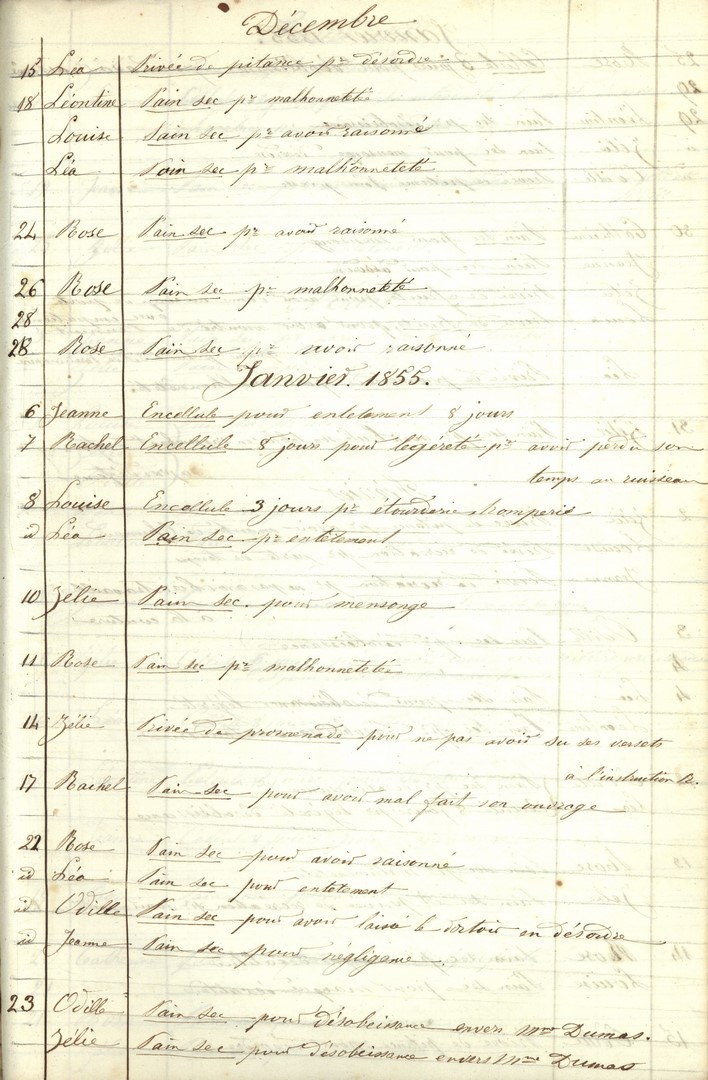 Décembre
15 Léa Privée de pitance pr désordre
18 Léontine Pain sec pr malhonneteté
Louise Pain sec pr avoir raisonné
Léa Pain sec pr malhonneteté
24 Rose Pain sec pr avoir raisonné
26 Rose Pain sec pr malhonneteté
28
28 Rose Pain sec pr avoir raisonné
Janvier 1855.
6 Jeanne Encellule pour entetement 8 jours
7 Rachel Encellule 8 jours pour légéreté pr avoir perdu son
temps au ruisseau
8 Louise Encellule 3 jours pr étourderie tromperie
id Léa Pain sec pr entetement
10 Zélie Pain sec. pour mensonge
11 Rose Pain sec pr malhonneteté
14 Zélie Privée de promenade pour ne pas avoir su ses versets
à l'instruction
17 Rachel Pain sec pour avoir mal fait son ouvrage
22 Rose Pain sec pour avoir raisonné
id Léa Pain sec pour entetement
id Odille Pain sec pour avoir laissé le dortoir en désordre
id Jeanne Pain sec pour negligence.
23 Odille Pain sec pour désobeissance envers Mme Dumas.
Zélie Pain sec pour désobeissance envers Mme Dumas